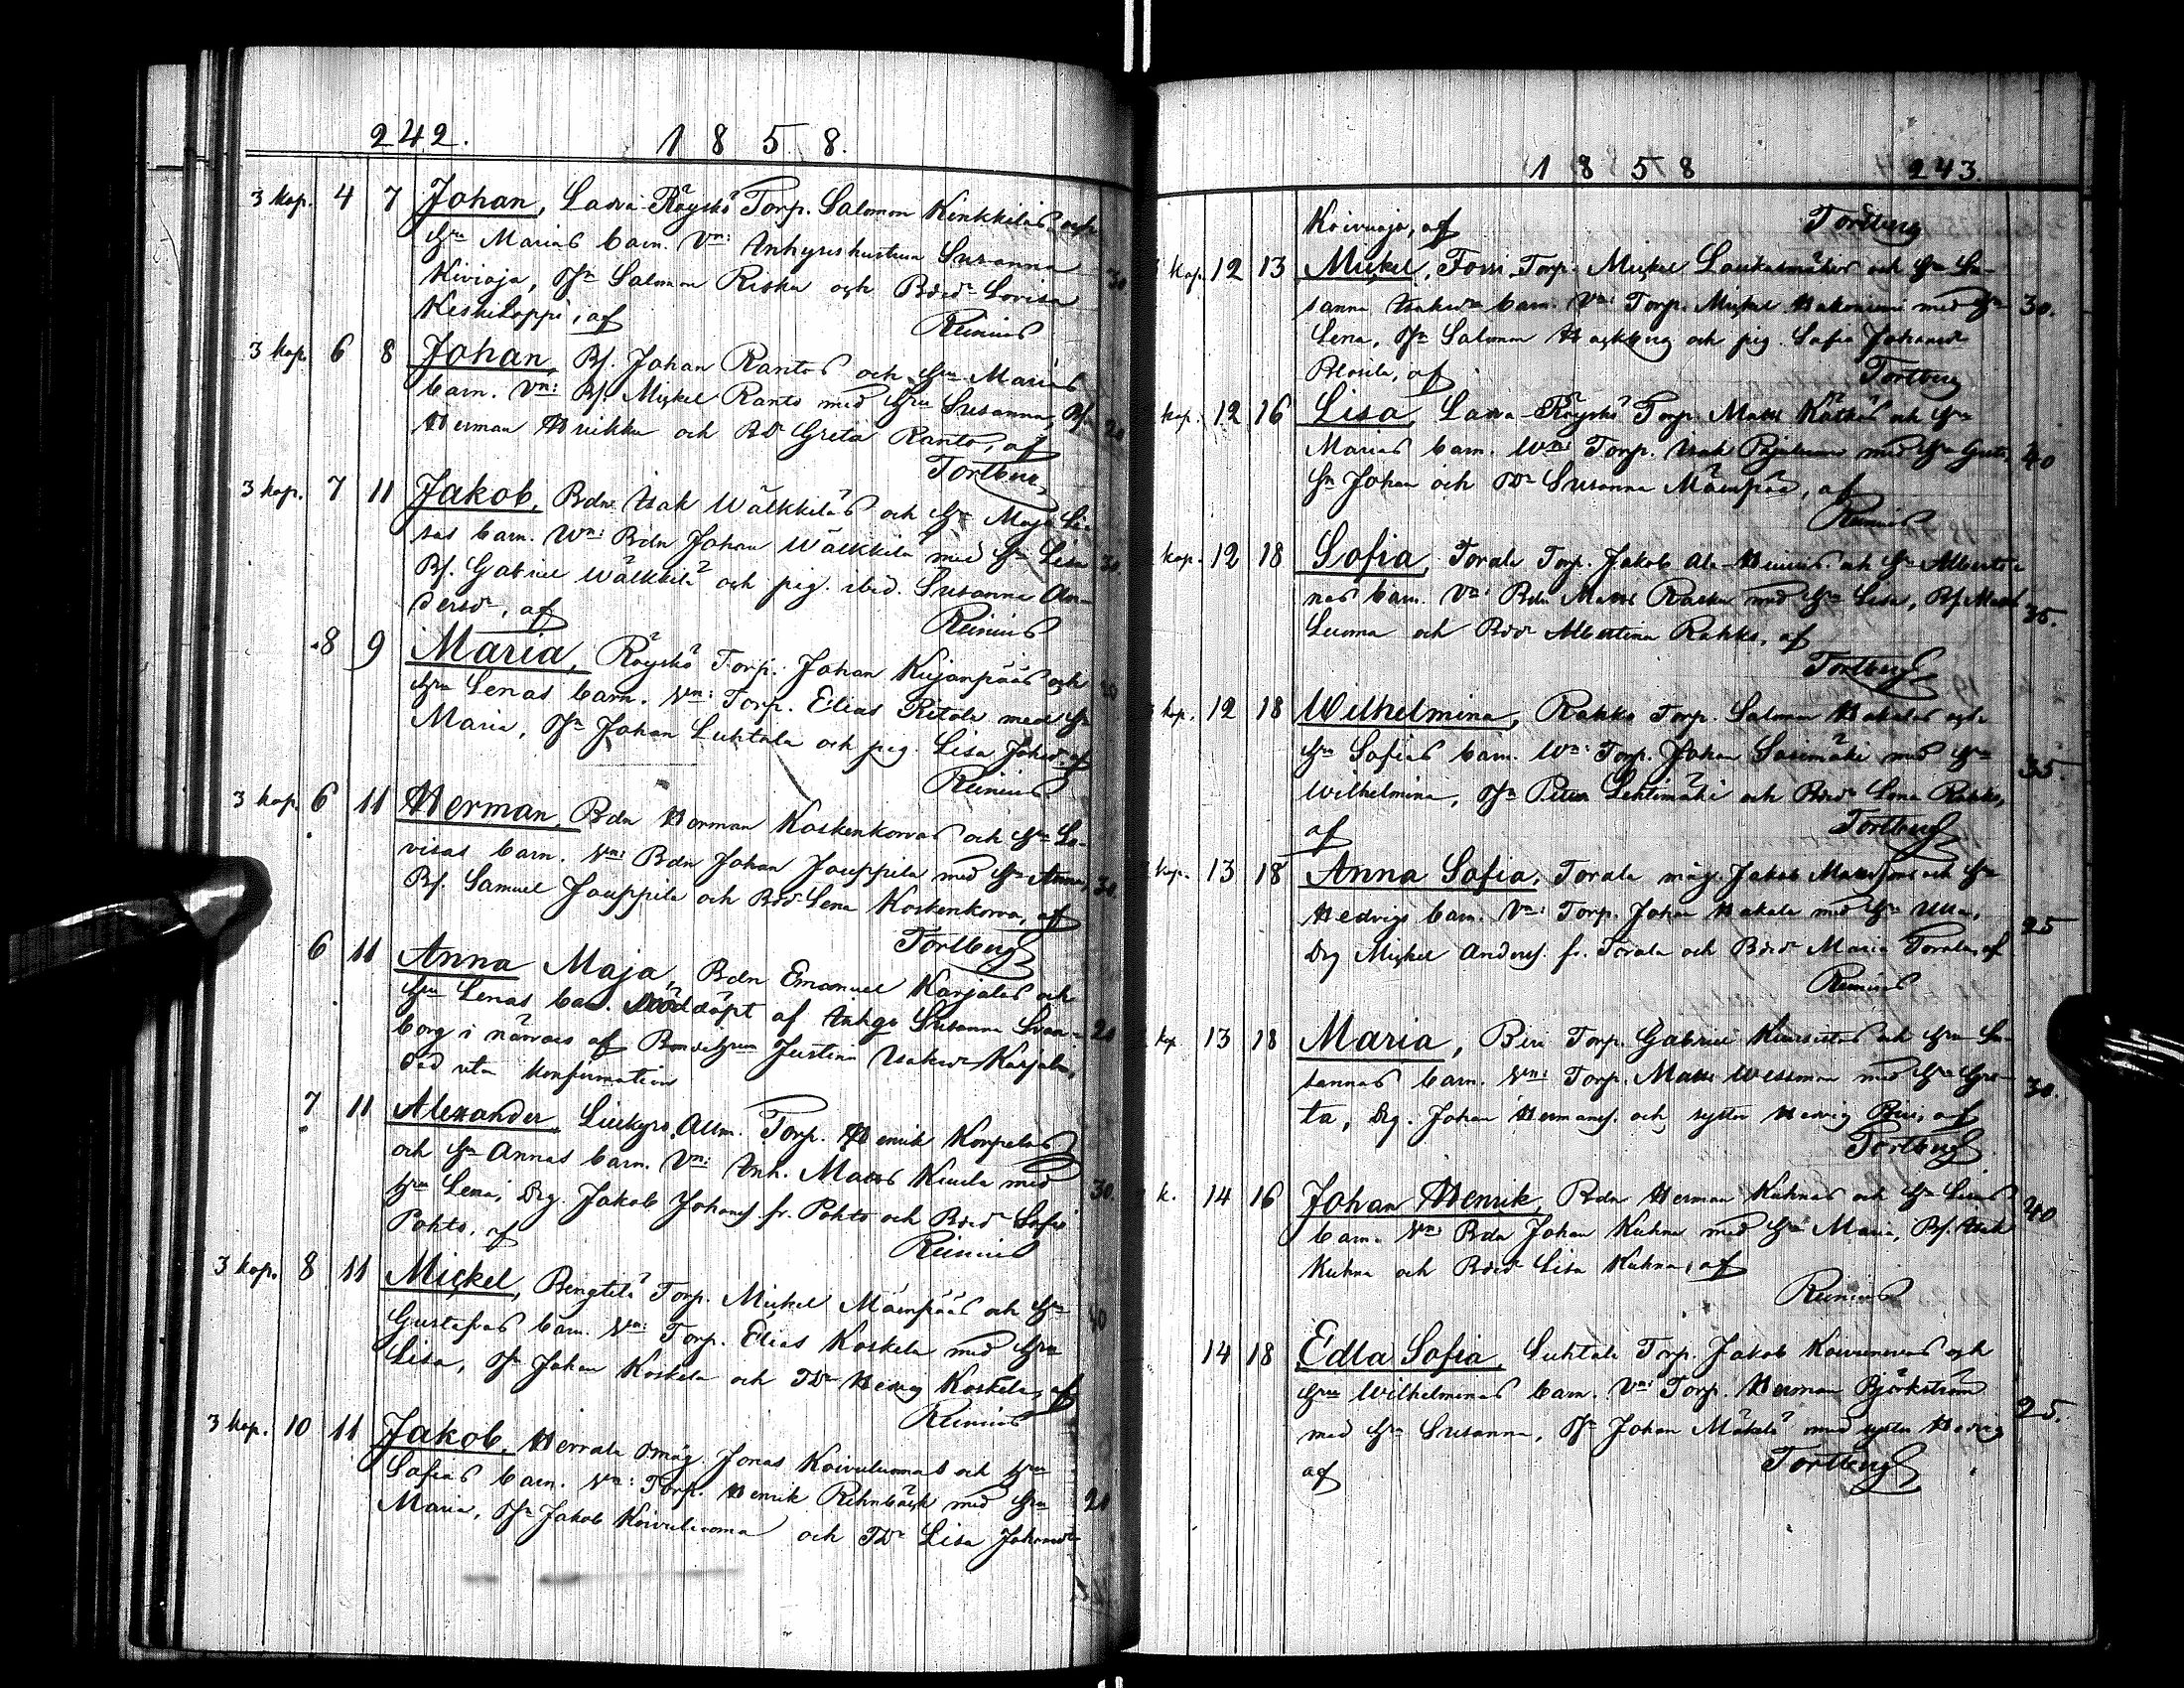 242. 1858.
3 kop. 4 7 Johan, Laxa-Röyskö Torp. Salomon Kinkkilas och
Hru Marias barn. Vn: Inhyseshustrun Susanna
Kivioja, Jn Salomon Riska och Bdrd Lovisa 30
Keskiloppi, af Reinius
3 kop. 6 8 Johan, Bf. Johan Rantos och Hru Marias
barn. Vn: Bf. Mickel Ranto med Hru Susanna, Bf. 20
Herman Huikku och BDr Greta Ranto, af
Tortberg
3 kop. 7 11 Jakob, Bdn Isak Wälkkiläs och Hr Maja Li-
sas barn. Wn: Bdn Johan Wälkkilä med Hr Lisa 30
Bf. Gabriel Wälkkilä och pig. ibid. Susanna An-
dersdr, af Reinius
8 9 Maria, Röyskö Torp. Johan Kujanpääs och
Hru Lenas barn. Vn: Torp. Elias Ritola med Hr
Maria, Jn Johan Luhtala och pig. Lisa Johsdr. af
Reinius
3 kop. 6 11 Herman, Bdn Herman Koskenkorvas och Hru Lo-
visas barn. Vn: Bdn Johan Jouppila med Hr Anna, 30.
Bf. Samuel Jouppila och Bdrd Lena Koskenkorva, af
Tortberg
6 11 Anna Maja, Bdn Emanuel Karjalas och
Hru Lenas barn. Nöddöpt af Inhga Susanna Svan- 20
borg i närvaro af Bondehrun Justina Isaksdr Karjala,
Död utan konfirmation
7 11 Alexander, Liukyro Allm. Torp. Henrik Korpelas
och Hru Annas barn. Vn: Inh. Matts Kiuila med
Hru Lena, Drg. Jakob Johansf. fr. Pohto och Bdrd Sofia 30.
Pohto, af Reinius
3 kop. 8 11 Mickel, Bengtilä Torp. Mickel Mäenpääs och Hru
Gustafvas barn. Vn: Torp. Elias Koskela med Hru 40
Lisa, Jn Johan Koskela och TDr Hedvig Koskela, af
Reinius
3 kop. 10 11 Jakob, Herrala måg. Jonas Koivuluomas och Hru
Sofias barn. Vn: Torp. Henrik Rehnbäck med Hru 20
Maria, Jn Jakob Koivuluoma och TDr Lisa Johansdr
1858 243
Koivuoja, af Tortberg
kop. 12 13 Mickel, Fossi Torp. Mickel Laukasmäkis och Hru Su-
sanna Isaksdrs barn. Vn: Torp. Mickel Hakoniemi med Hru 30.
Lena, Jn Salomon Hackberg och pig. Sofia Johansdr
Plosila, af Tortberg
kop. 12 16 Lisa, Laxa-Röyskö Torp. Matts Kätkäs och Hru
Marias barn. Wn: Torp. Isak med Hru Greta, 40
Sn Johan och TDr Susanna Mäenpää, af
Reinius
kop. 12 18 Sofia, Torala Torp. Jakob Ala-Heinis och Hr Alberti-
nas barn. Vn: Bdn Matts Rasku med Hru Lisa, Bf Matts 35.
Luoma och Bdrd Albertina Rahko, af
Tortberg
kop. 12 18 Wilhelmina, Rahko Torp. Salomon Hakalas och
Hru Sofias barn. Wn: Torp. Johan Sarimäki med Hru 35.
Wilhelmina, Jn Petter Lehtimäki och Bdrd Lena Rahko,
af Tortberg
kop. 13 18 Anna Sofia, Torala måg. Jakob Mattssons och Hru
Hedvigs barn. Vn: Torp. Johan Hakala med Hru Ulla, 25
Drg Mickel Andersf. fr. Torala och Bdrd Maria Torala, af
Reinius
kop 13 18 Maria, Biri Torp. Gabriel och Hru Su-
sannas barn. Vn: Torp. Matts Wessman med Hru Gre- 30.
ta, Drg. Johan Hermansf. och syster Hedvig Biri, af
Tortberg
k. 14 16 Johan Henrik, Bdn Herman Kuhnas och Hru Lisas 40
barn. Vn: Bdn Johan Kuhna med Hru Maria, Bf. Isak
Kuhna och Bdrd Lisa Kuhna, af
Reinius
14 18 Edla Sofia, Luhtala Torp. Jakob Koivuniemis och
Hrus Wilhelminas barn. Vn: Torp. Herman Björkström 25.
med Hru Susanna, Jn Johan Mäkelä med syster Hedvig
af Tortberg